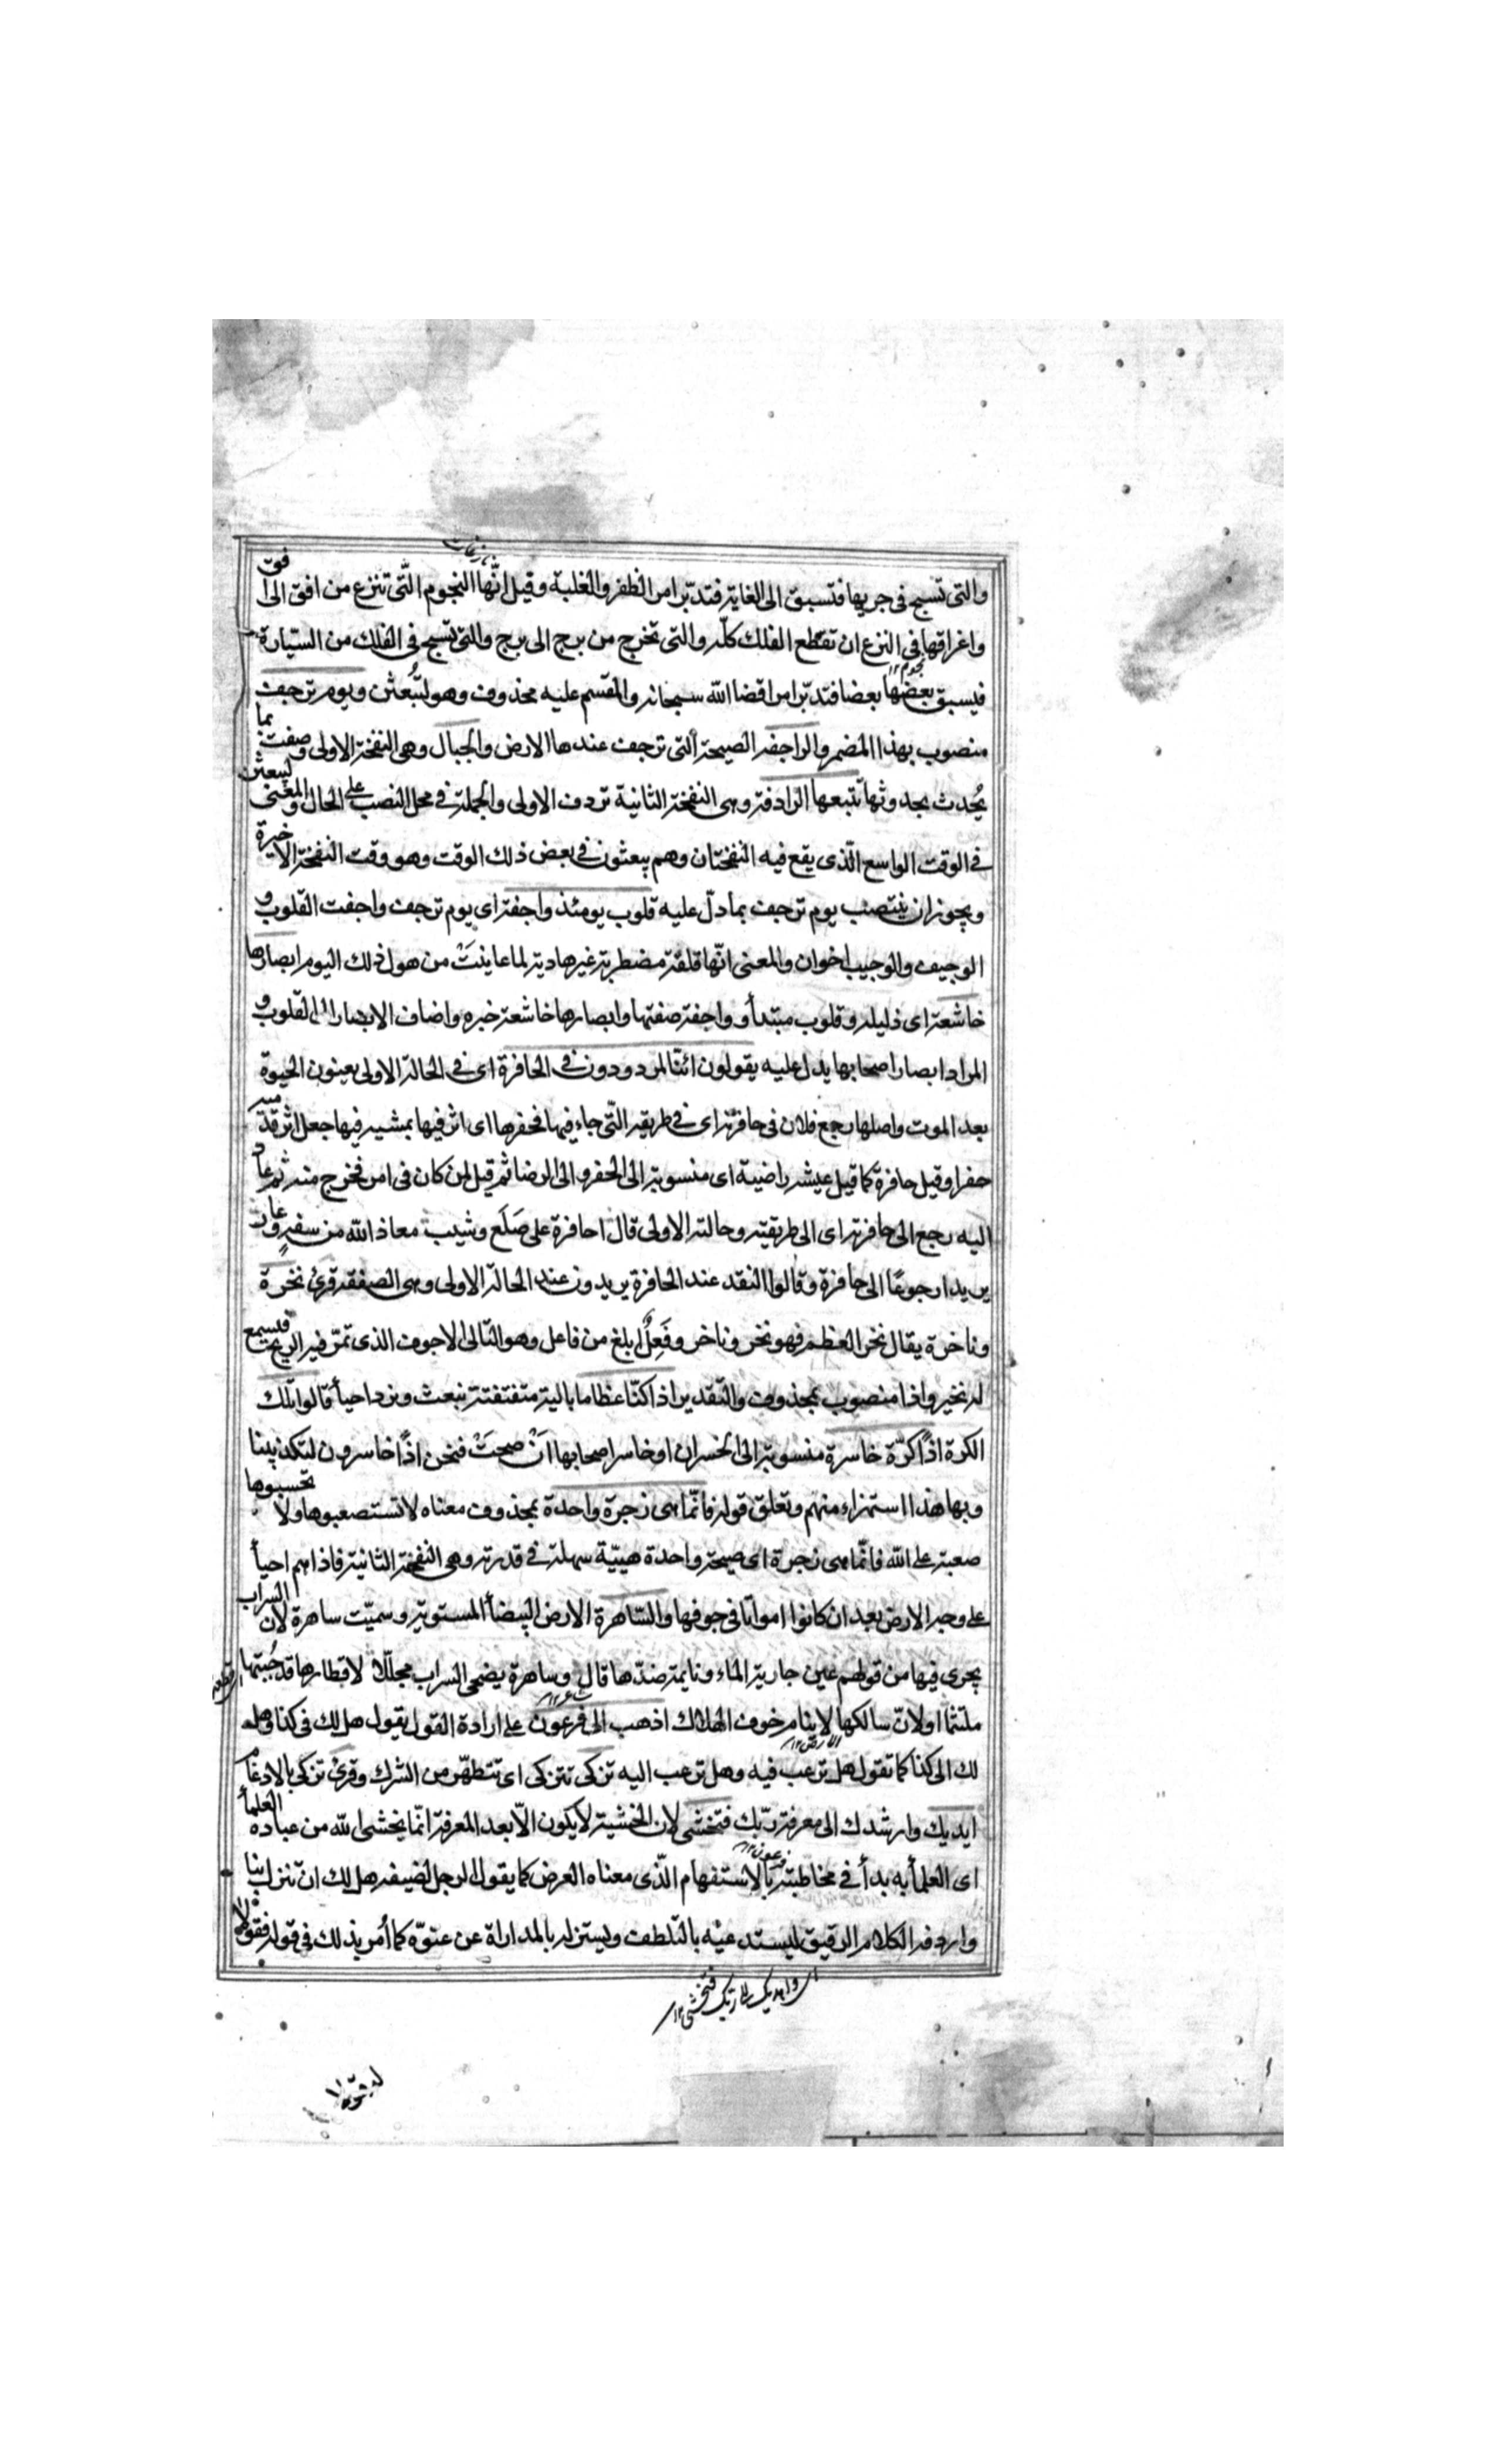 نازعات
والتى تسبح فى جريها فتسبق الى الغاية فتدبّر امر الظفر والغلبة وقيل انّها النجوم الّتى تنزع من افق الى افق
واغراقها فى النزع ان تقطع الفلك كلّه والتى تخرج من برج الى برج والتى تسبح فى الفلك من السيّارة
نجوم ١٢
فيسبق بعضها بعضا فتدبّر امر اقضا الله سبحانه والمقسم عليه محذوف وهو لتبعثن ويوم ترجف
منصوب بهذا المضمر والراجفه الصيحة التى ترجف عندها الارض والجبال وهى النفخة الاولى وصفت بما
يُحدث بحدوثها تتبعها الرادفة وهى النفخة الثانية تردف الاولى والجملة فى محل النصب على الحال والمعنى لتبعثن
فى الوقت الواسع الّذى يقع فيه النفختان وهم يبعثون فى بعض ذلك الوقت وهو وقت النفخة الاخيرة
ويجوز ان ينتصب يوم ترجف بما دلّ عليه قلوب يومئذ واجفة اى يوم ترجف واجفت القلوب و
الوجيف والوجيب اخوان والمعنى انّها قلقة مضطربة غير هادية لما عاينتْ من هول ذلك اليوم ابصارها
خاشعة اى ذليله وقلوب مبتدأ وواجفة صفتها وابصارها خاشعة خبره واضاف الابصار الى القلوب و
المراد ابصار اصحابها يدل عليه يقولون ائنّا لمردودون فى الحافرة اى فى الحالة الاولى يعينون الحيوة
بعد الموت واصلها رجع فلان فى حافرته اى فى طريقه التى جاء فيها فحفرها اى اثر فيها بمشيه فيها جعل اثر قدميه
حفرا وقيل حافرة كما قيل عيشه راضية اى منسوبة الى الحفر والى الرضا ثم قيل لمن كان فى امر فخرج منه ثم عاد
اليه رجع الى حافرته اى الى طريقته وحالته الاولى قال احافرة على صَلَع وشيب معاذ الله من سفهٍ وعار
يريد ارجوعًا الى حافرة وقالوا النقد عند الحافرة يريدون عند الحالة الاولى وهى الصفقه قرئ نخرة
وناخرة يقال نخر العظم فهو نخر وناخر وفَعِلٌ ابلغ من فاعل وهو البالى الاجوف الذى تمرّ فيه الريح فيسمع
له نخير واذا منصوب بمحذوف والتقدير اذا كنّا عظاما بالية متفتتة نبعث ونرد احيأ قالوا تلك
الكرة اذًا كرّة خاسرة منسوبة الى الخسران او خاسر اصحابها انْ صحتْ فنحن اذًا خاسرون لتكذيبنا
وبها هذا استهزاء منهم وتعلق قوله فانّما هى زجرة واحدة بمحذوف معناه لا تستصعبوها ولا تحسبوها
صعبة على الله فانّما هى زجرة اى صيحة واحدة هيّنة سهلة فى قدرته وهى النفخة الثانية فاذا هم احيأ
على وجه الارض بعد ان كانوا امواتا فى جوفها والسّاهرة الارض البيضأ المستوية وسميّت ساهرة لان السراب
يجرى فيها من قولهم عين جارية الماء ونايمة ضدّها قال وساهرة يضحى السراب مجلّلا لاقطارها قد جُبتها
شاعر ١٢
ملتثما او لانّ سالكها لا ينام خوف الهلاك اذهب الى فرعون على ارادة القول يقول هل لك فى كذا وهل
الارض ١٢
لك الى كذا كما تقول هل ترغب فيه وهل ترغب اليه تزكى تتزكى اى تتطهّر من الشرك وقرئ تزكى بالادغام
اهديك وارشدك الى معرفة ربّك فتخشى لان الخشية لا يكون الّا بعد المعرفة انّما يخشى الله من عباده العلمأ
فرعون ١٢
اى العلمأ به بدأ فى مخاطبته بالاستفهام الّذى معناه العرض كما يقول الرجل لضيفه هل لك ان تنزل بنا
واردفه الكلام الرقيق ليستدعيْه بالتلطف ويستنزله بالمداراة عن عتوّه كما أُمر بذلك فى قوله فقولا
اى واهديك الى ربك فتخشى ١٢